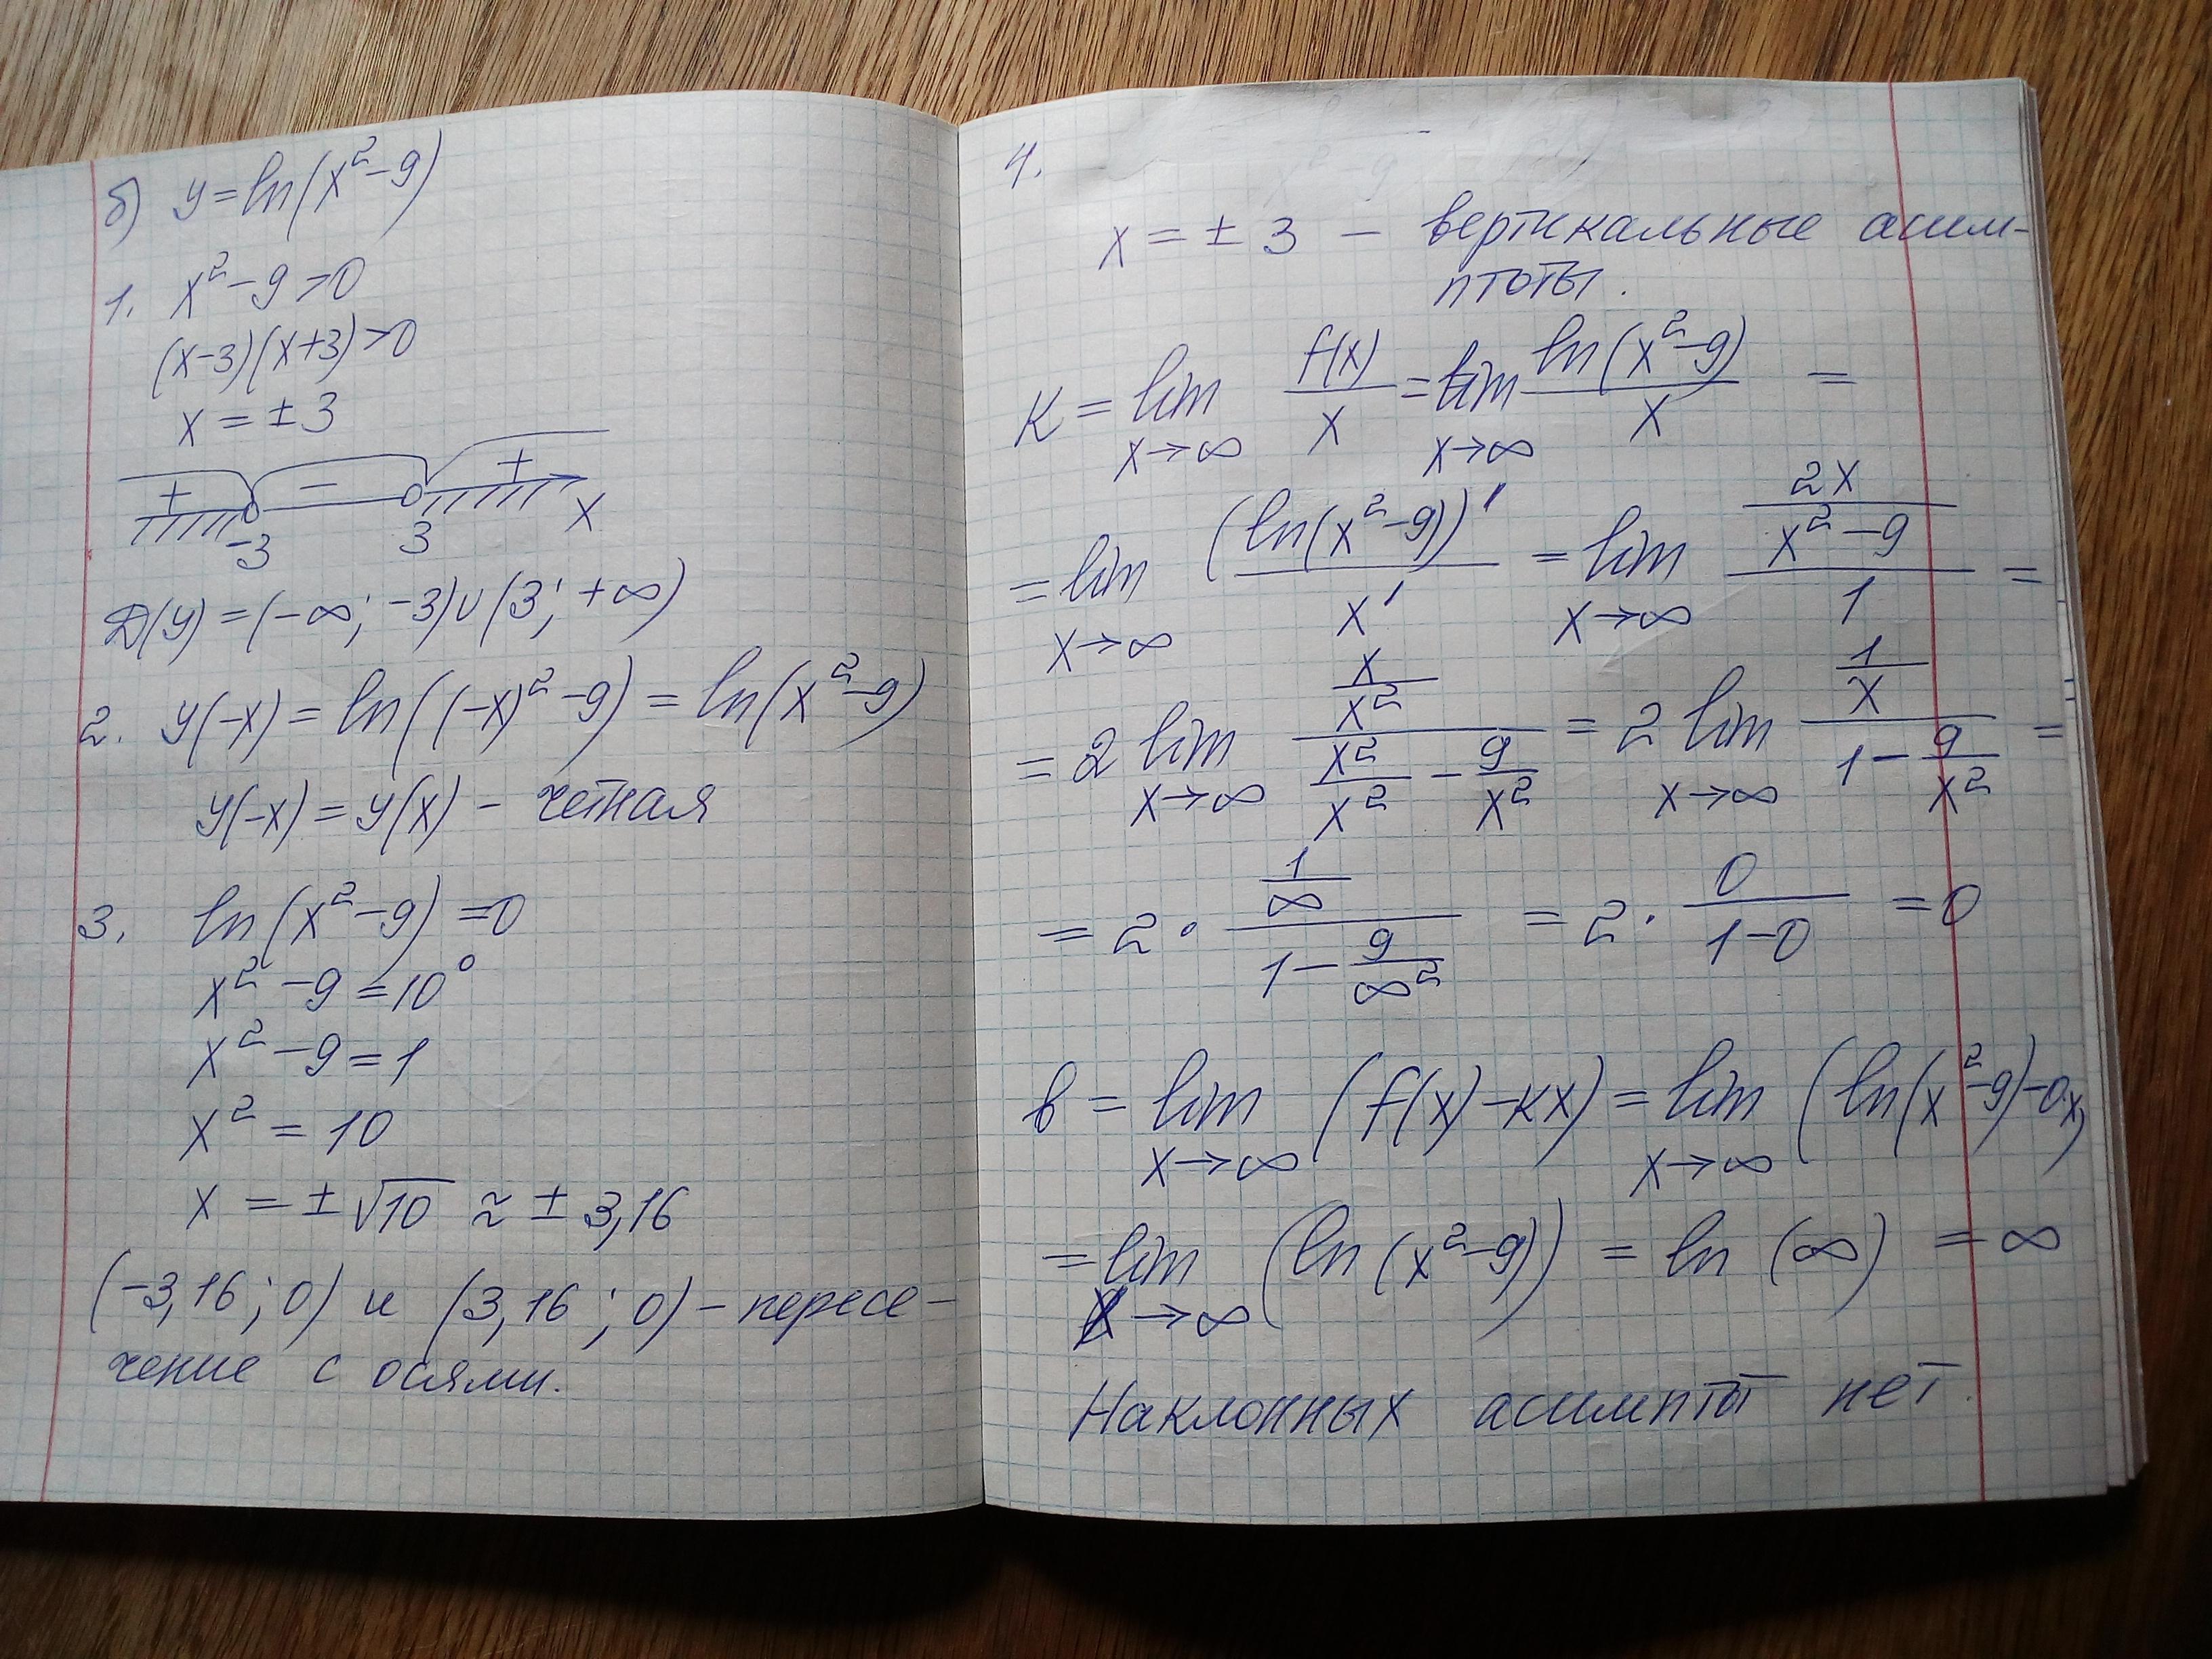 б) y = ln(x² - 9)
1. x² - 9 > 0
(x-3)(x+3) > 0
x = ± 3
+ - +
-3 3 x
D(y) = (-∞; -3) ∪ (3; +∞)
2. y(-x) = ln((-x)² - 9) = ln(x² - 9)
y(-x) = y(x) - четная
3. ln(x² - 9) = 0
x² - 9 = 10⁰
x² - 9 = 1
x² = 10
x = ± √10 ≈ ± 3,16
(-3,16; 0) и (3,16; 0) - пересе-
чение с осями.
4.
x = ± 3 - вертикальные асим-
птоты.
K = lim x→∞ f(x)/x = lim x→∞ ln(x²-9)/x =
= lim x→∞ (ln(x²-9))'/x' = lim x→∞ (2x/(x²-9))/1 =
= 2 lim x→∞ (x/x²)/(x²/x² - 9/x²) = 2 lim x→∞ (1/x)/(1 - 9/x²) =
= 2 · (1/∞)/(1 - 9/∞²) = 2 · 0/(1-0) = 0
b = lim x→∞ (f(x) - kx) = lim x→∞ (ln(x²-9) - 0·x)
= lim x→∞ (ln(x²-9)) = ln(∞) = ∞
Наклонных асимптот нет.